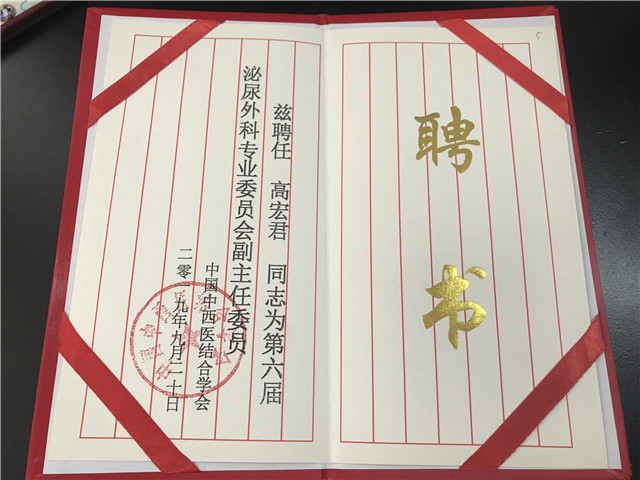 5
聘书
兹聘任 高宏君 同志为第六届
泌尿外科专业委员会副主任委员
中国中西医结合学会
二零一九年九月二十日